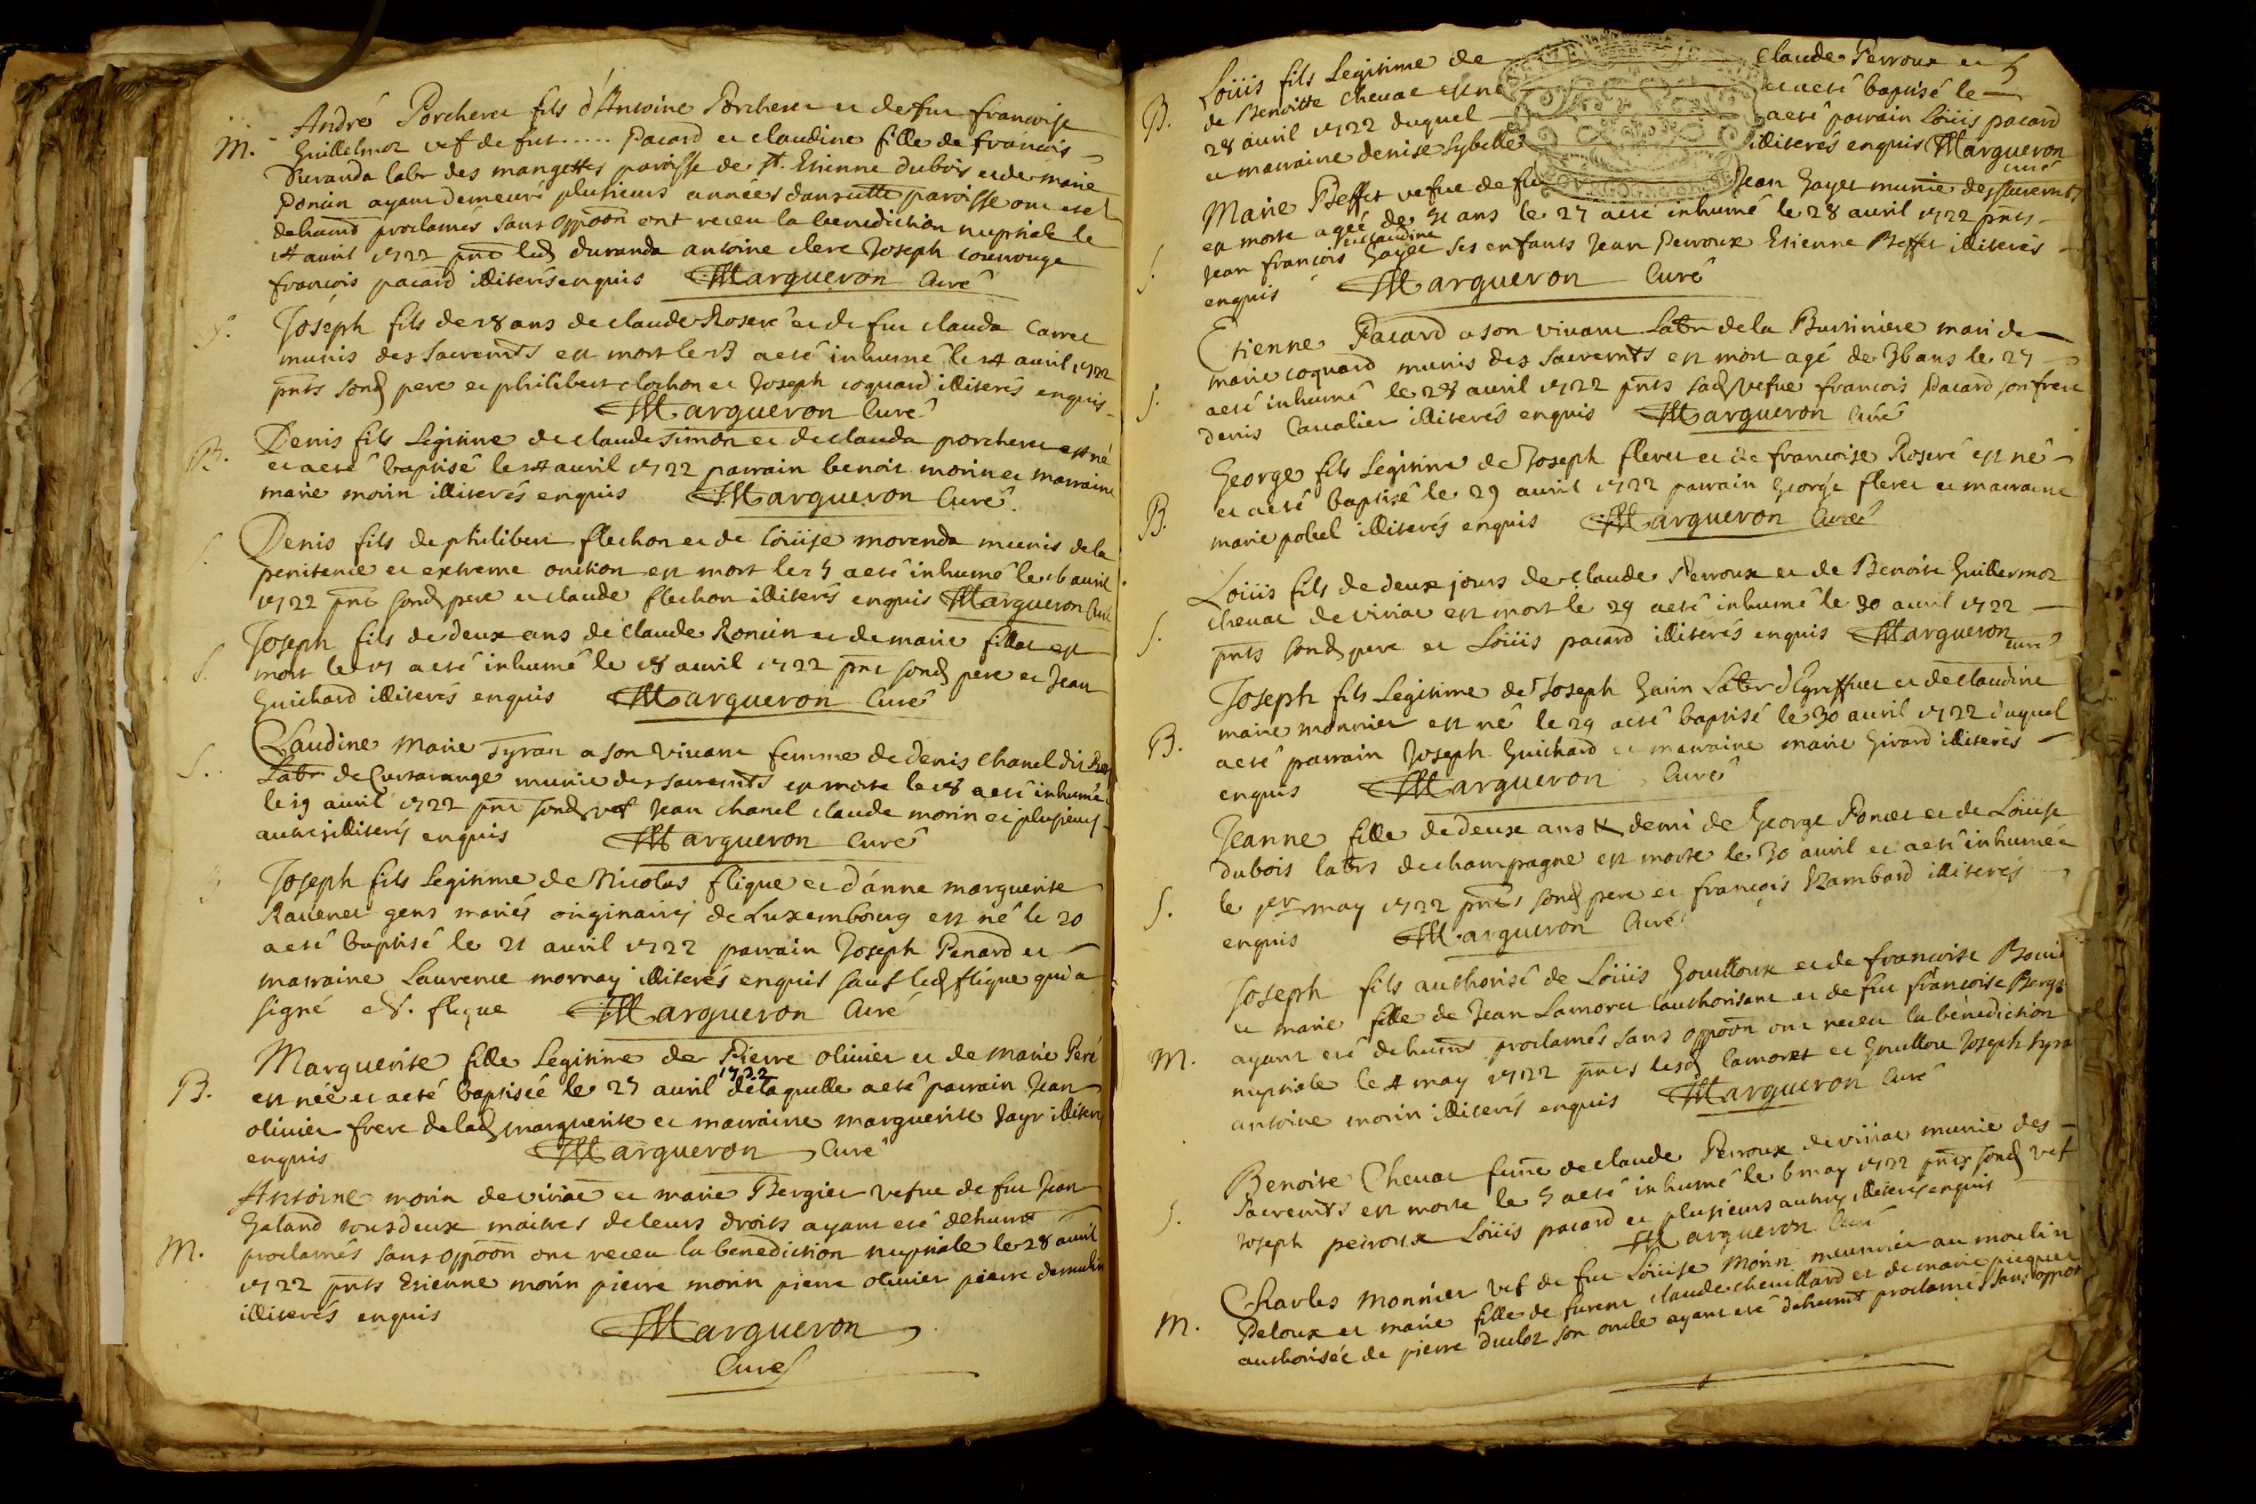 M. André Porcheret fils d'Antoine Porcheret et de fue francoise
Guillelmot vef de fue ..... Pacard et claudine fille de françois
Duranda labr des mangettes paroisse de st. Etienne dubois et de marie
Poncin ayant demeuré plusieurs années dans cette paroisse ont esté
dehuemt proclamés sans oppoon ont receu la benediction nuptiale le
14 avril 1722 pnt led duranda antoine clerc Joseph
françois pacard illiterés enquis Margueron Curé
S. Joseph fils de 18 ans de claude Roseré et de fue clauda Carret
munis des sacremts est mort le 13 a eté inhumé le 14 avril 1722
pnts sond pere et philibert clochon et Joseph coquard illiterés enquis
Margueron Curé
B. Denis fils legitime de claude simon et de clauda porcheret est né
et a eté baptisé le 14 avril 1722 parrain benoit morin et marraine
marie morin illiterés enquis Margueron Curé.
S. Denis fils de philibert flechon et de Loüise morenda munis de la
penitence et extreme onction est mort le 15 a eté inhumé le 16 avril
1722 pnt sond pere et claude flechon illiterés enquis Margueron Curé
S. Joseph fils de deux ans de claude Roncin et de marie fillat est
mort le 17 a eté inhumé le 18 avril 1722 pnt sond pere et Jean
Guichard illiterés enquis Margueron Curé
S. Claudine Marie Tyran a son vivant femme de denis chanel dit
Labr de Curtarange munie des sacremts est morte le 18 a eté inhumée
le 19 avril 1722 pnt sond vef Jean chanel claude morin et plusieurs
autres illiterés enquis Margueron Curé
Joseph fils legitime de Nicolas flique et d'anne marguerite
Ravenet gens mariés originaires de Luxembourg est né le 20
a eté baptisé le 21 avril 1722 parrain Joseph Penard et
marraine Laurence mornay illiterés enquis sauf led flique qui a
signé N. flique Margueron Curé
B. Marguerite fille legitime de Pierre olivier et de marie Peré
1722
est née et a eté baptisée le 25 avril de laquelle a eté parrain Jean
olivier frere de lad marguerite et marraine marguerite Jayr illiterés
enquis Margueron Curé
M. Antoine morin de viriat et marie Bergier vefue de fue Jean
Galand tous deux maitres de leurs droits ayant eté dehuemt
proclamés sans oppoon ont receu la benediction nuptiale le 28 avril
1722 pnts Etienne morin pierre morin pierre olivier pierre demulin
illiterés enquis Margueron
Curé
5
B. Loüis fils Legitime de Claude Perroux et
de Benoitte chevat est né et a eté baptisé le
28 avril 1722 duquel a eté parrain Loüis pacard
et marraine denise sybelle illiterés enquis Margueron
curé
S. Marie Beffet vefue de fue Jean Gayet munie des sacremts
est morte agée de 71 ans le 27 a eté inhumé le 28 avril 1722 pnts
et claudine
Jean françois Gayet ses enfants Jean Perroux Etienne Beffet illiterés
enquis Margueron Curé
S. Etienne Pacard a son vivant Labr de la Bussiniere mari de
marie coquard munis des sacremts est mort agé de 36 ans le 27
a eté inhumé le 28 avril 1722 pnts sad vefue francois Pacard son frere
denis Cavalier illiterés enquis Margueron Curé
B. George fils Legitime de Joseph fleret et de francoise Roseré est né
et a eté baptisé le 29 avril 1722 parrain George fleret et marraine
marie pobel illiterés enquis Margueron Curé
S. Loüis fils de deux jours de claude Perroux et de Benoite Guillermoz
chevat de viriat est mort le 29 a eté inhumé le 30 avril 1722
pnts sond pere et Loüis pacard illiterés enquis Margueron curé
B. Joseph fils Legitime de Joseph Garin Labr d'Egreffuet et de claudine
marie monnier est né le 29 a eté baptisé le 30 avril 1722 duquel
a eté parrain Joseph Guichard et marraine marie Girard illiterés
enquis Margueron Curé
S. Jeanne fille de deux ans & demi de George Poncet et de Loüise
dubois labrs de champagne est morte le 30 avril et a eté inhumée
le 1er may 1722 pnts sond pere et françois Rambard illiterés
enquis Margueron Curé
M. Joseph fils authorisé de Loüis Gouilloux et de francoise
et marie fille de Jean Lamoret l'authorisant et de fue françoise
ayant eté dehuemt proclamés sans oppoon ont receu la bénediction
nuptiale le 4 may 1722 pnts lesd lamoret et Gouilloux Joseph
antoine morin illiterés enquis Margueron Curé
S. Benoite Chevat feme de claude Perroux de viriat munie des
Sacremts est morte le 5 a eté inhumé le 6 may 1722 pnts sond vef
Joseph perroux Loüis pacard et plusieurs autres illiterés enquis
Margueron Curé
M. Charles Monnier vef de fue Loüise Morin meunnier au moulin
Peloux et marie fille de furent claude chevillard et de marie picquet
authorisée de pierre duclos son oncle ayant eté dehuemt proclamés sans oppoon